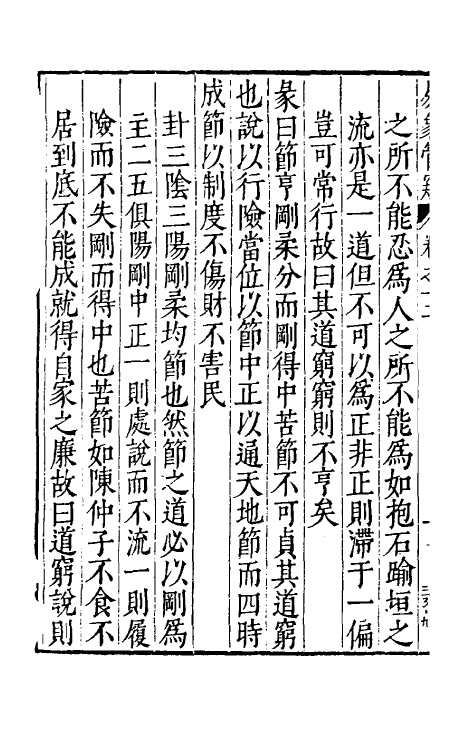 之所不能忍爲人之所不能爲如抱石踰垣之
流亦是一道但不可以爲正非正則滯于一偏
豈可常行故曰其道窮窮則不亨矣
彖曰節亨剛柔分而剛得中苦節不可貞其道窮
也說以行險當位以節中正以通天地節而四時
成節以制度不傷財不害民
卦三陰三陽剛柔均節也然節之道必以剛爲
主二五俱陽剛中正一則處說而不流一則履
險而不失剛而得中也苦節如陳仲子不食不
居到底不能成就得自家之廉故曰道窮說則